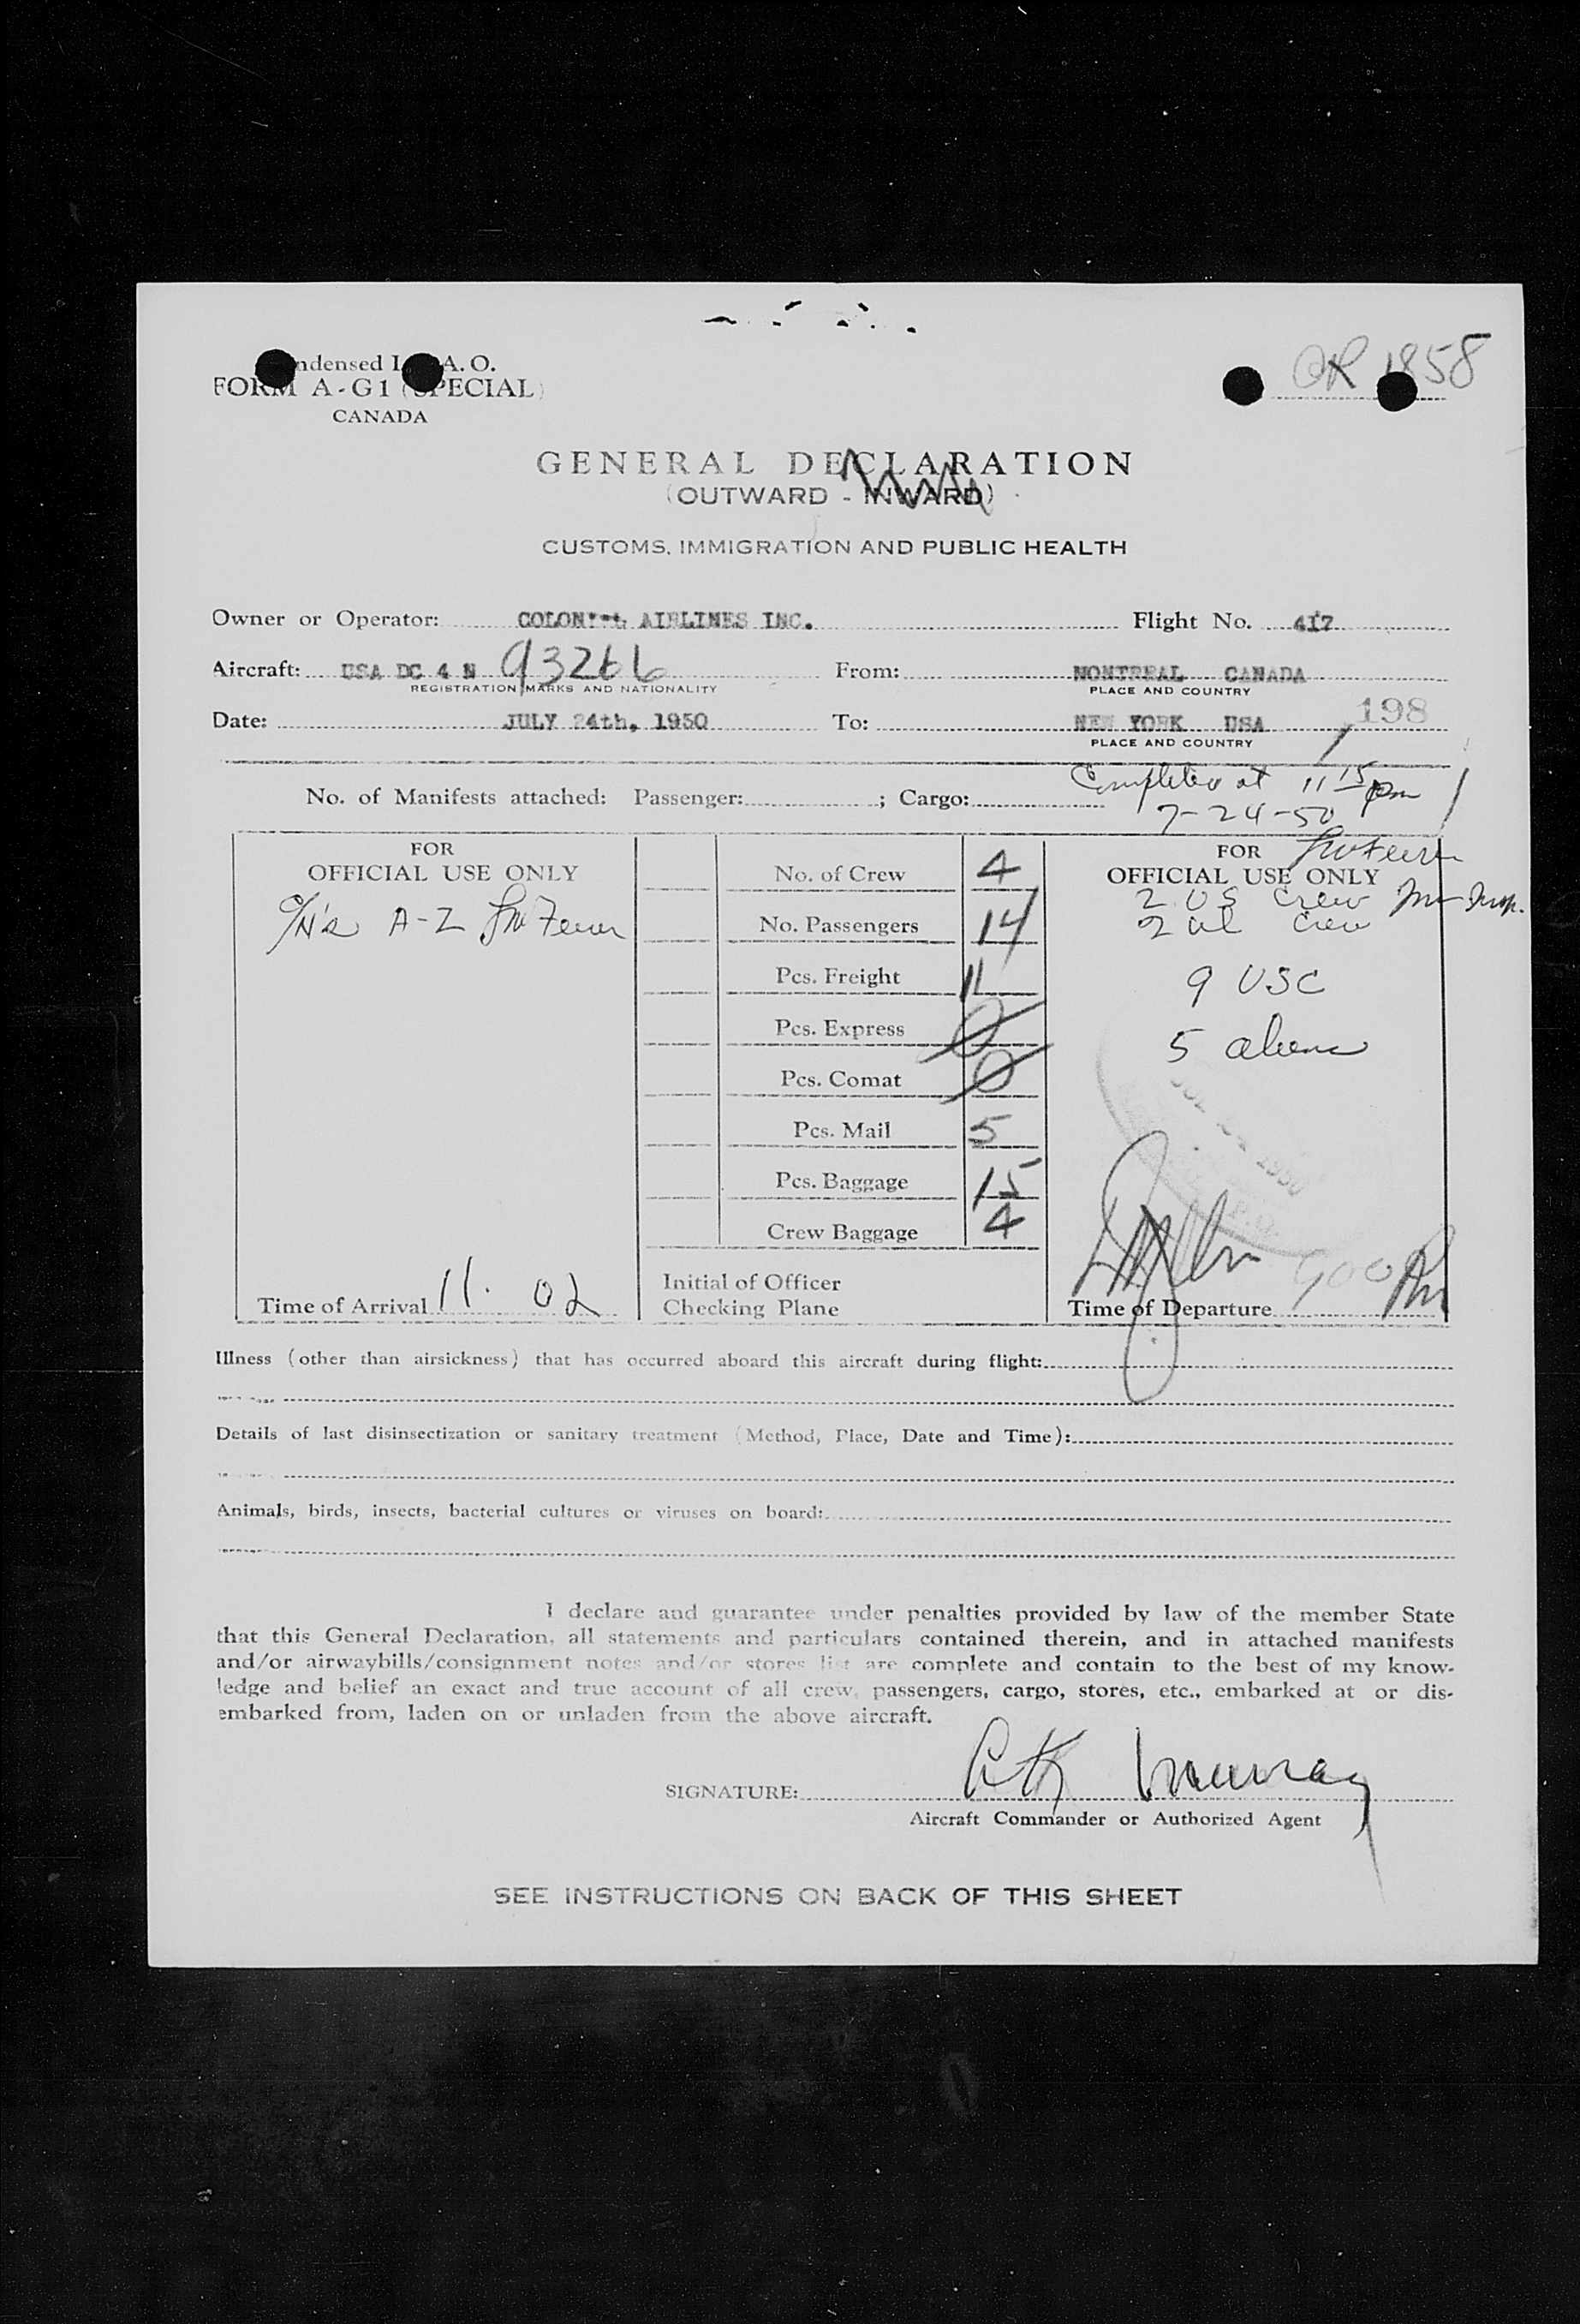 ndensed I. A. O.
OR 1858
FORM A-G1 (SPECIAL)
CANADA
GENERAL DECLARATION
(OUTWARD - INWARD)
CUSTOMS, IMMIGRATION AND PUBLIC HEALTH
Owner or Operator: AIRLINES INC. Flight No. 417
Aircraft: USA DC 4 N 93266 From: MONTREAL CANADA
REGISTRATION MARKS AND NATIONALITY PLACE AND COUNTRY
Date: JULY 24th, 1950 To: NEW YORK USA 198
PLACE AND COUNTRY
Completed at 11 15 pm
No. of Manifests attached: Passenger: ; Cargo:
7-24-50
FOR
OFFICIAL USE ONLY
A-Z
Time of Arrival 11. 02
No. of Crew 4
No. Passengers 14
Pcs. Freight 11
Pcs. Express 0
Pcs. Comat 0
Pcs. Mail 5
Pcs. Baggage 15
Crew Baggage 4
Initial of Officer
Checking Plane
FOR
OFFICIAL USE ONLY
2 US Crew
2 al Crew
9 USC
5 aliens
1950
Time of Departure 900 PM
Illness (other than airsickness) that has occurred aboard this aircraft during flight:
Details of last disinsectization or sanitary treatment (Method, Place, Date and Time):
Animals, birds, insects, bacterial cultures or viruses on board:
I declare and guarantee under penalties provided by law of the member State
that this General Declaration, all statements and particulars contained therein, and in attached manifests
and/or airwaybills/consignment notes and/or stores list are complete and contain to the best of my know-
ledge and belief an exact and true account of all crew, passengers, cargo, stores, etc., embarked at or dis-
embarked from, laden on or unladen from the above aircraft.
SIGNATURE: Murray
Aircraft Commander or Authorized Agent
SEE INSTRUCTIONS ON BACK OF THIS SHEET